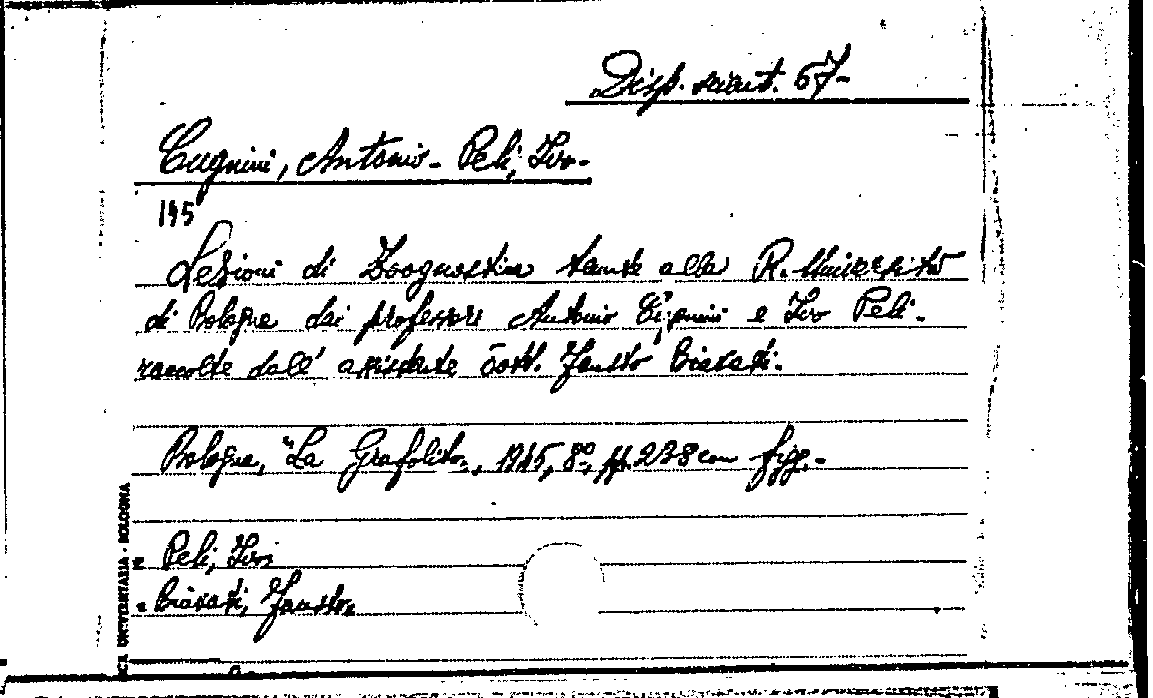 Disp. scient. 67-
Cugnini, Antonio - Peli, Ivo-
195
Lezioni di Zoognostica tenute alla R. Università
di Bologna dai professori Antonio Cugnini e Ivo Peli.
raccolte dall' assistente dott. Fausto Biavati.
Bologna, "La Grafolito", 1945, 8°, pp. 228 con figg.-
Peli, Ivo
Biavati, Fausto.
UNIVERSITARIA - BOLOGNA